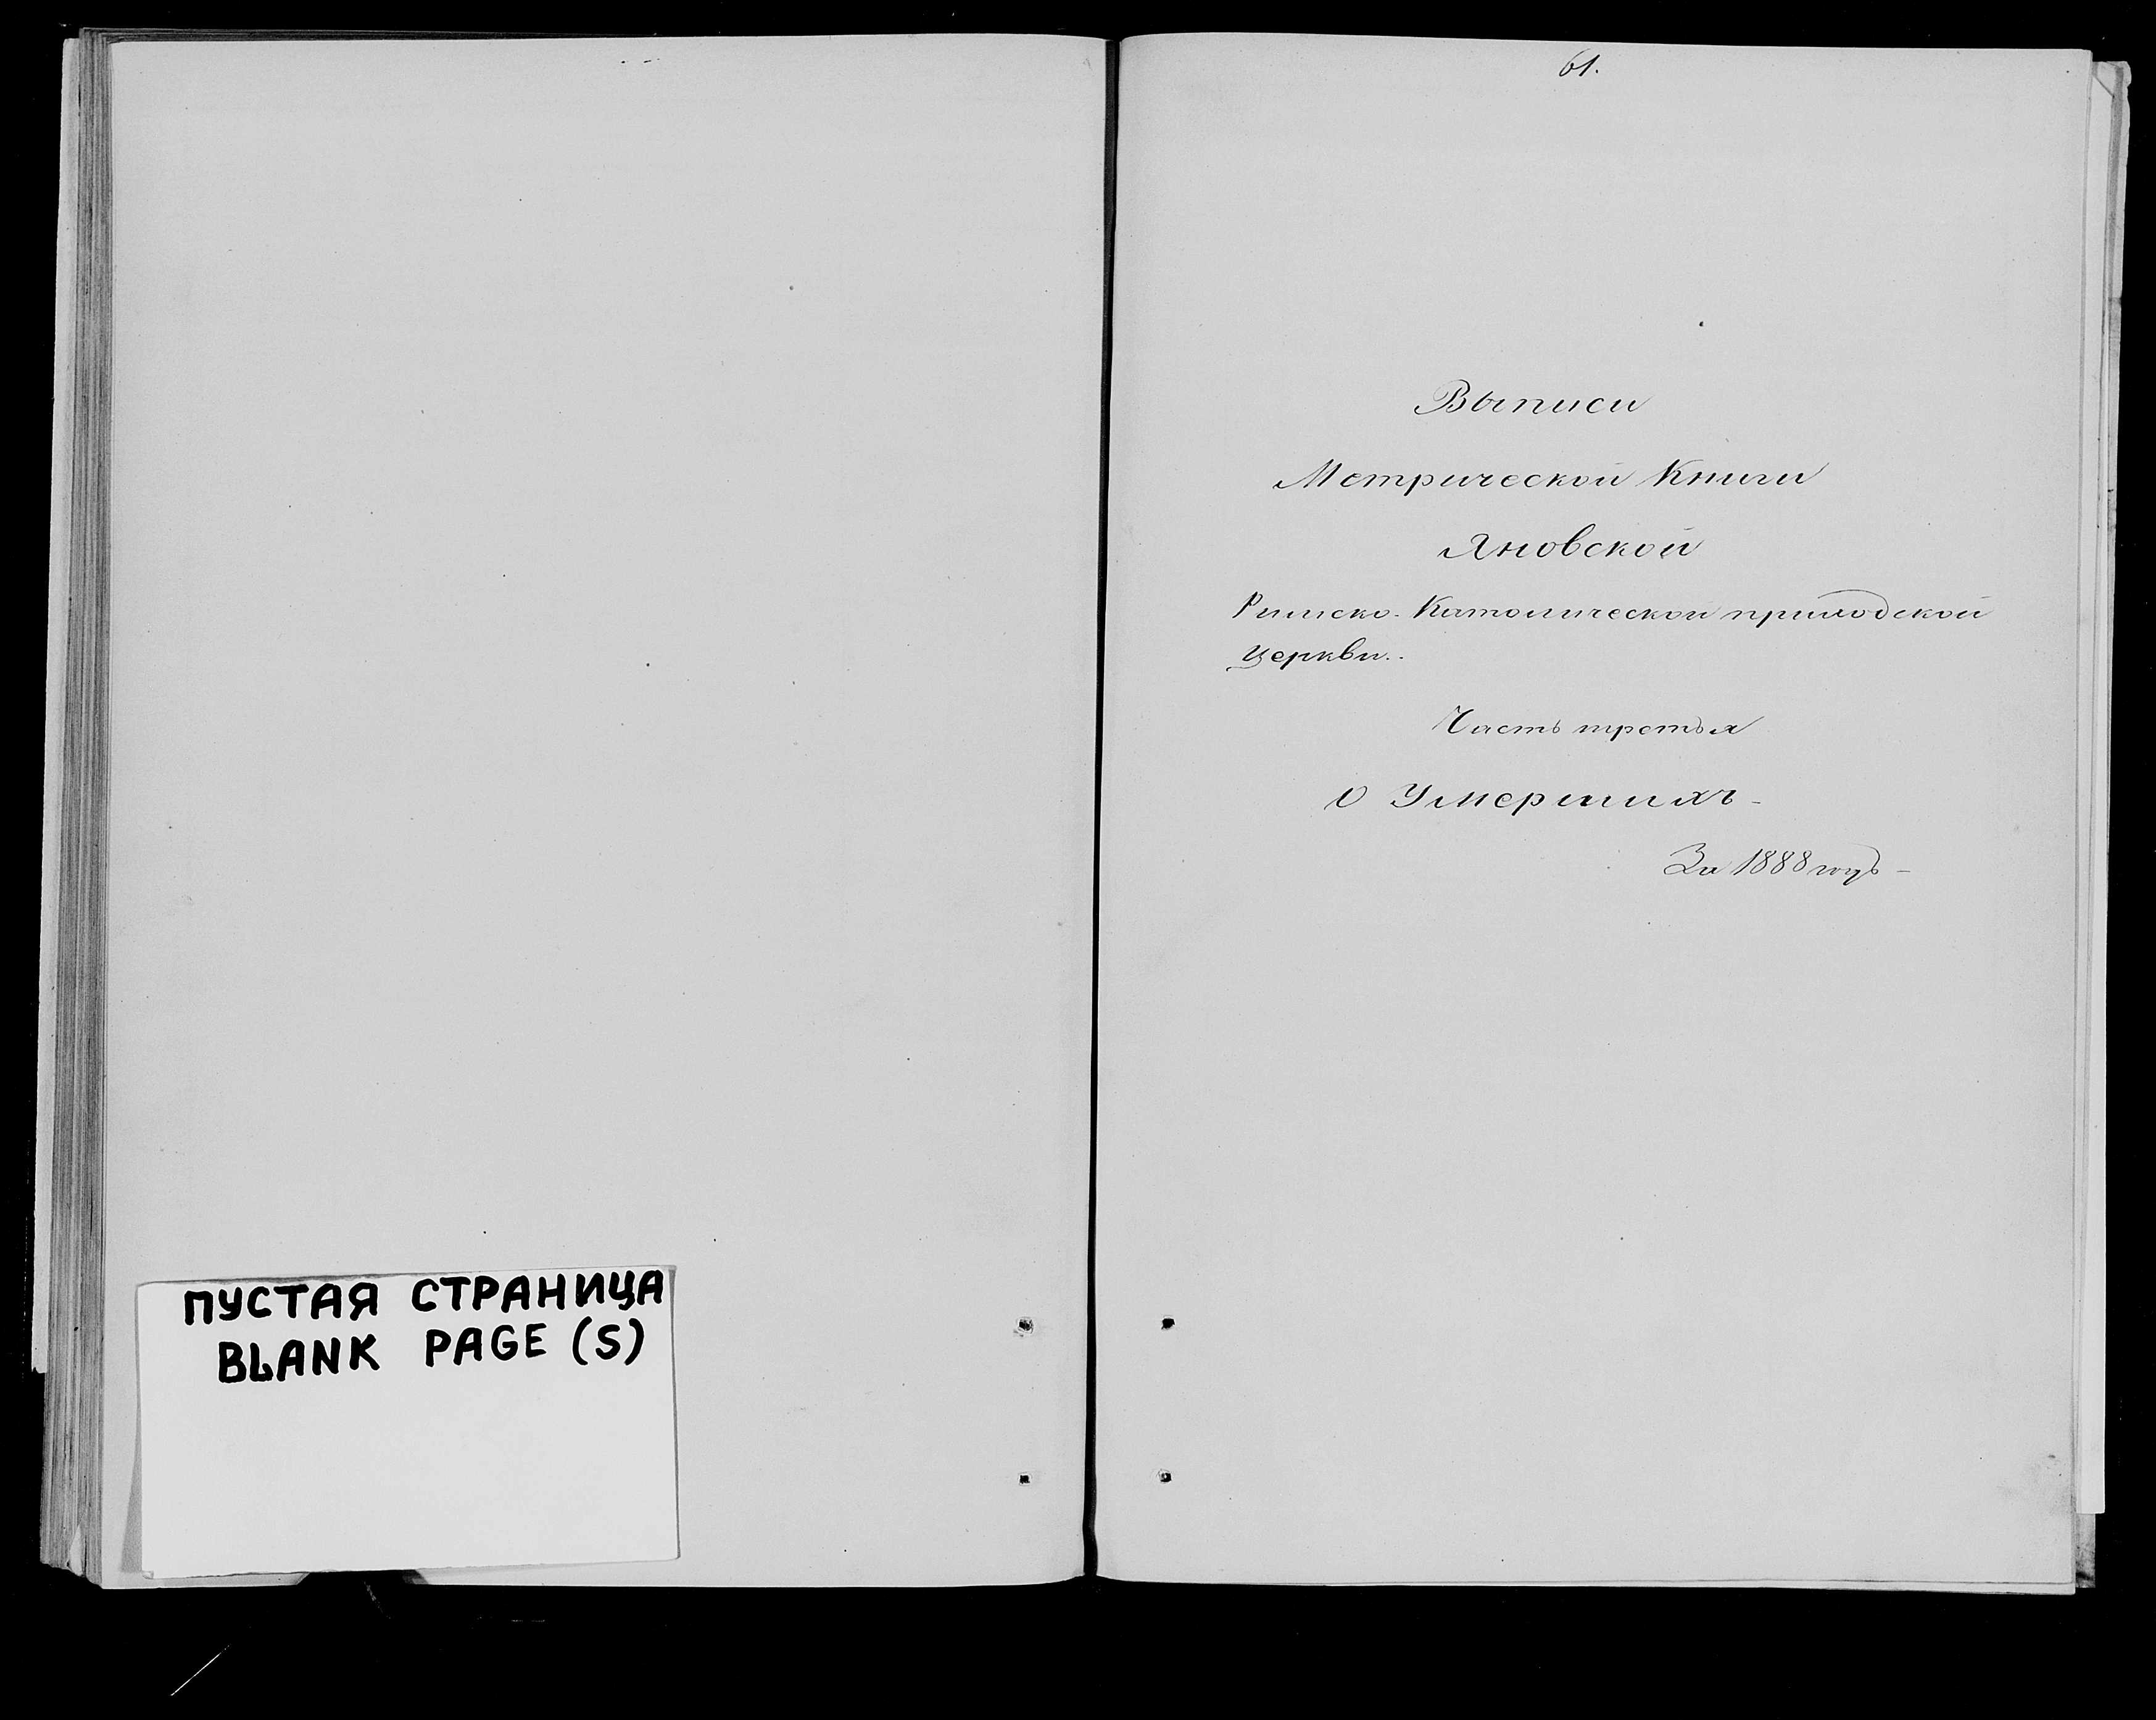 ПУСТАЯ СТРАНИЦА
BLANK PAGE (S)
61.
Выписи
Метрической Книги
Яновской
Римско-Католической приходской
церкви..
Часть третья
О Умершихъ
За 1888 годъ